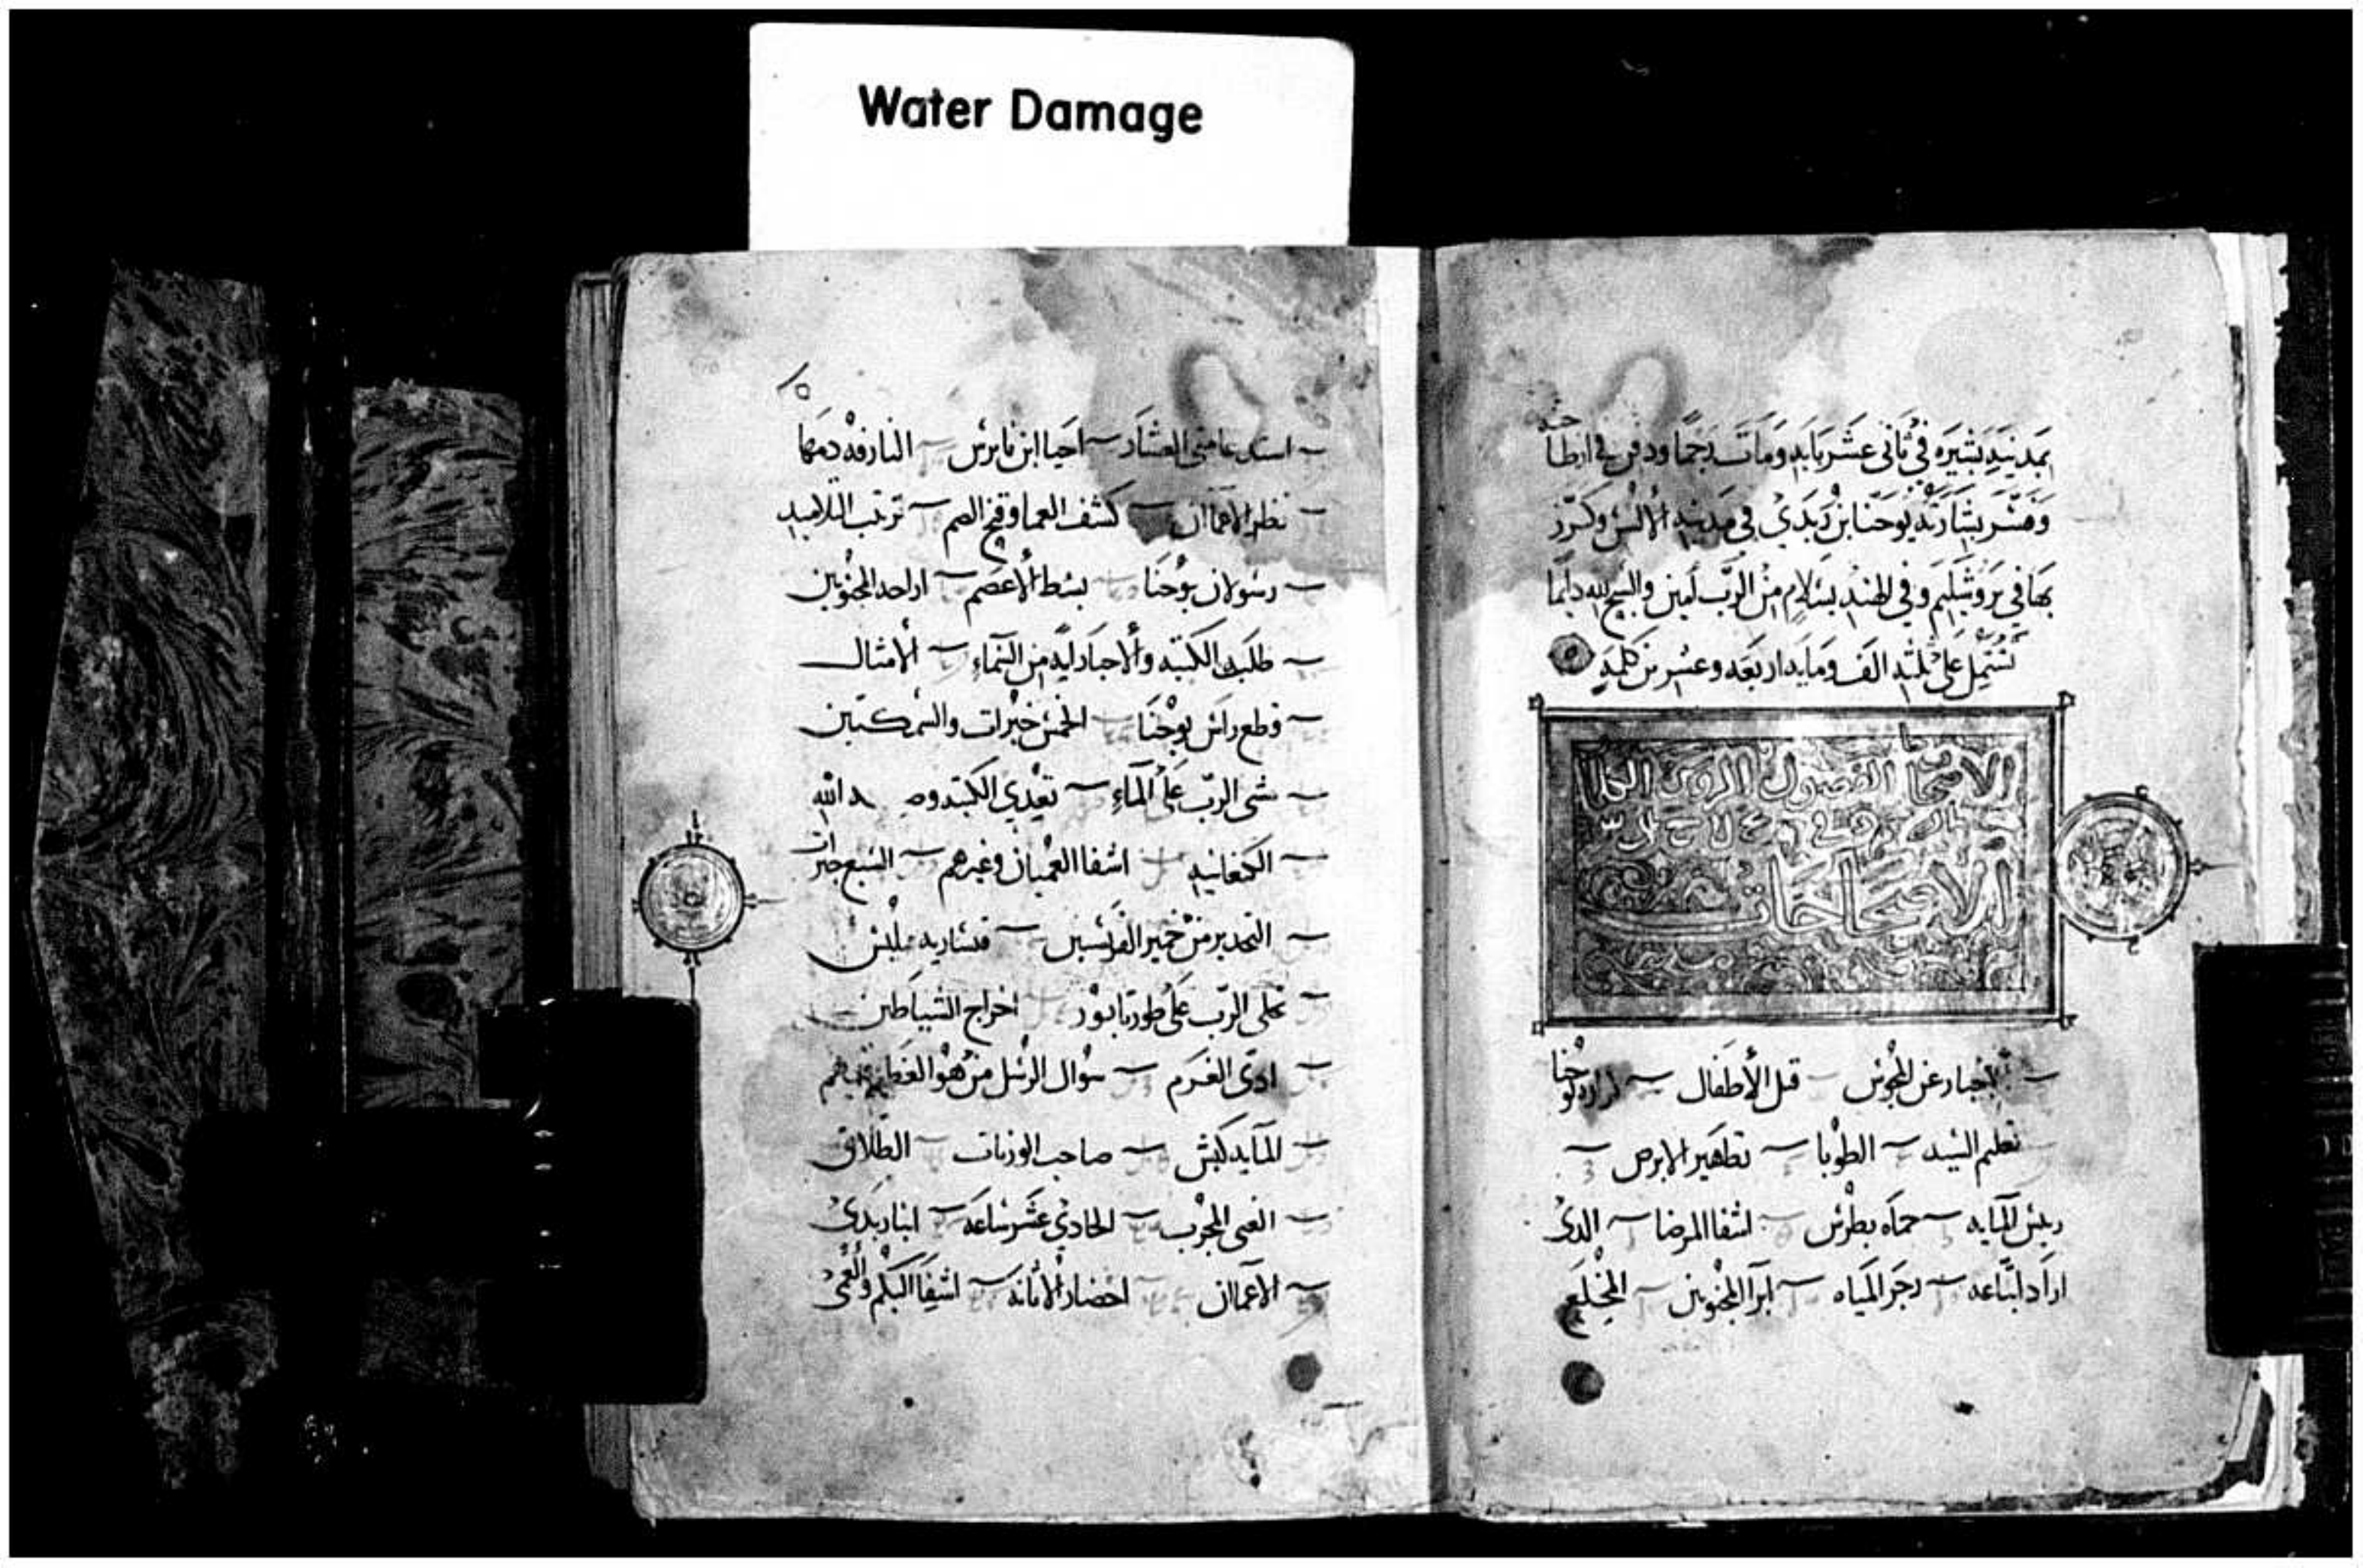 Water Damage
بمدينة بشيره في ثاني عشر بابه ومات رجما ودفن في
وفسر بشارته يوحنا بن زبدي في مدينة وكرز
بها في يروشليم وفي الهند بسلام من الرب امين والسبح لله دايما
تشتمل على ثلثة الف ومايه اربعه وعشرين كلمه
الفصول
الاصحاحات
اخبار عن المجوس قتل الأطفال
تعليم السيد الطوبا تطهير الابرص
ريس المايه حماه بطرس اشفا المرضا الدى
اراد اتباعه زجر المياه ابرا المجنونين المخلع
متى العشار احيا ابن يايرس النازفه دمها
نظر الاعماان كشف العما وفتح الصم ترتيب التلاميد
رسولان يوحنا بسط الأعصم ارا احد المجنونين
طلب الكتبه والاحبار ايه من السماء الأمثال
قطع راس يوحنا الخمس خبزات والسمكتين
مشى الرب على الماء تعدي الكتبه الله
الكنعانيه اشفا العميان وغيرهم السبع خبزات
التحدير من خمير الفريسين قيساريه فيلبس
تجلى الرب على طور تابور اخراج الشياطين
ادى الغرم سوال الرسل من هو العظيم فيهم
المايه كبش صاحب الوزنات الطلاق
الغنى المجرب الحادي عشر ساعه ابنا زبدى
الاعماان احضار الأتانه اشفا البكم والعمى